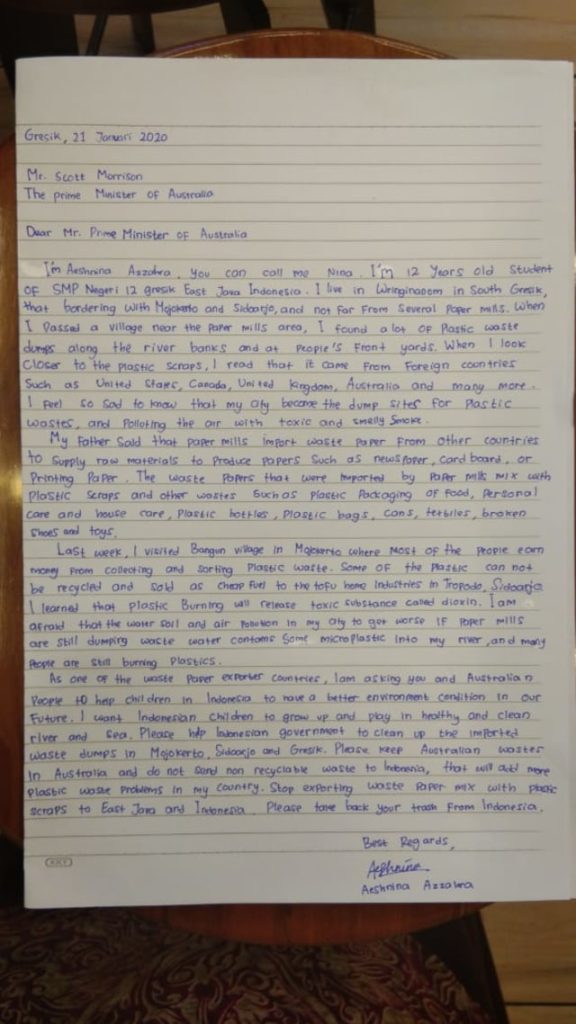 Gresik, 21 Januari 2020
Mr. Scott Morrison
The prime Minister of Australia
Dear Mr. Prime Minister of Australia
I'm Aeshnina Azzahra. You can call me Nina. I'm 12 Years old Student
OF SMP Negeri 12 gresik East Java Indonesia. I live in Wringinanom in South Gresik,
that bordering with Mojokerto and Sidoarjo, and not far From Several Paper mills. When
I Passed a village near the Paper mills area, I found a lot of Plastic waste
dumps along the river banks and at People's Front yards. When I look
Closer to the plastic scraps, I read that it came From Foreign countries
Such as United States, Canada, United kingdom, Australia and many more.
I feel so sad to know that my city become the dump sites for Plastic
wastes, and Polloting the air with toxic and smelly Smoke.
My Father Said that paper mills import waste Paper From other countries
to supply raw materials to Produce papers Such as newspaper, card board, or
Printing Paper. The waste Papers that were Imported by Paper mills mix with
Plastic Scraps and other wastes Such as Plastic Packaging of Food, Personal
care and house care, Plastic bottles, Plastic bags, cans, textiles, broken
shoes and toys.
Last week, I visited Bangun village in Mojokerto where most of the People earn
money From collecting and sorting Plastic waste. Some of the Plastic can not
be recycled and sold as cheap fuel to the tofu home Industries in Tropodo, Sidoarjo
I learned that plastic Burning will release toxic substance called dioxin. I am
afraid that the water soil and air Pollution in my city to get worse IF Paper mills
are still dumping waste water contains Some microplastic into my river, and many
People are still burning Plastics.
As one of the waste Paper exporter countries, I am asking you and Australian
People to help children in Indonesia to have a better environment condition in our
Future. I want Indonesian children to grow up and play in healthy and clean
river and sea. Please help Indonesian government to clean up the imported
waste dumps in Mojokerto, Sidoarjo and Gresik. Please keep Australian wastes
In Australia and do not Send non recyclable waste to Indonesia, that will add more
plastic waste Problems in my country. Stop exporting waste Paper mix with plastic
scraps to East Java and Indonesia. Please take back your trash From Indonesia.
Best Regards,
Aeshnina
Aeshnina Azzahra